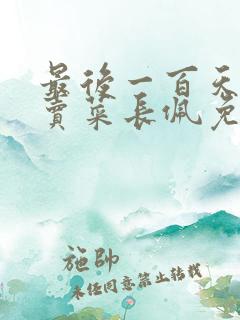 最後一百天
賣菜長佩免
施帥
未经同意禁止转载